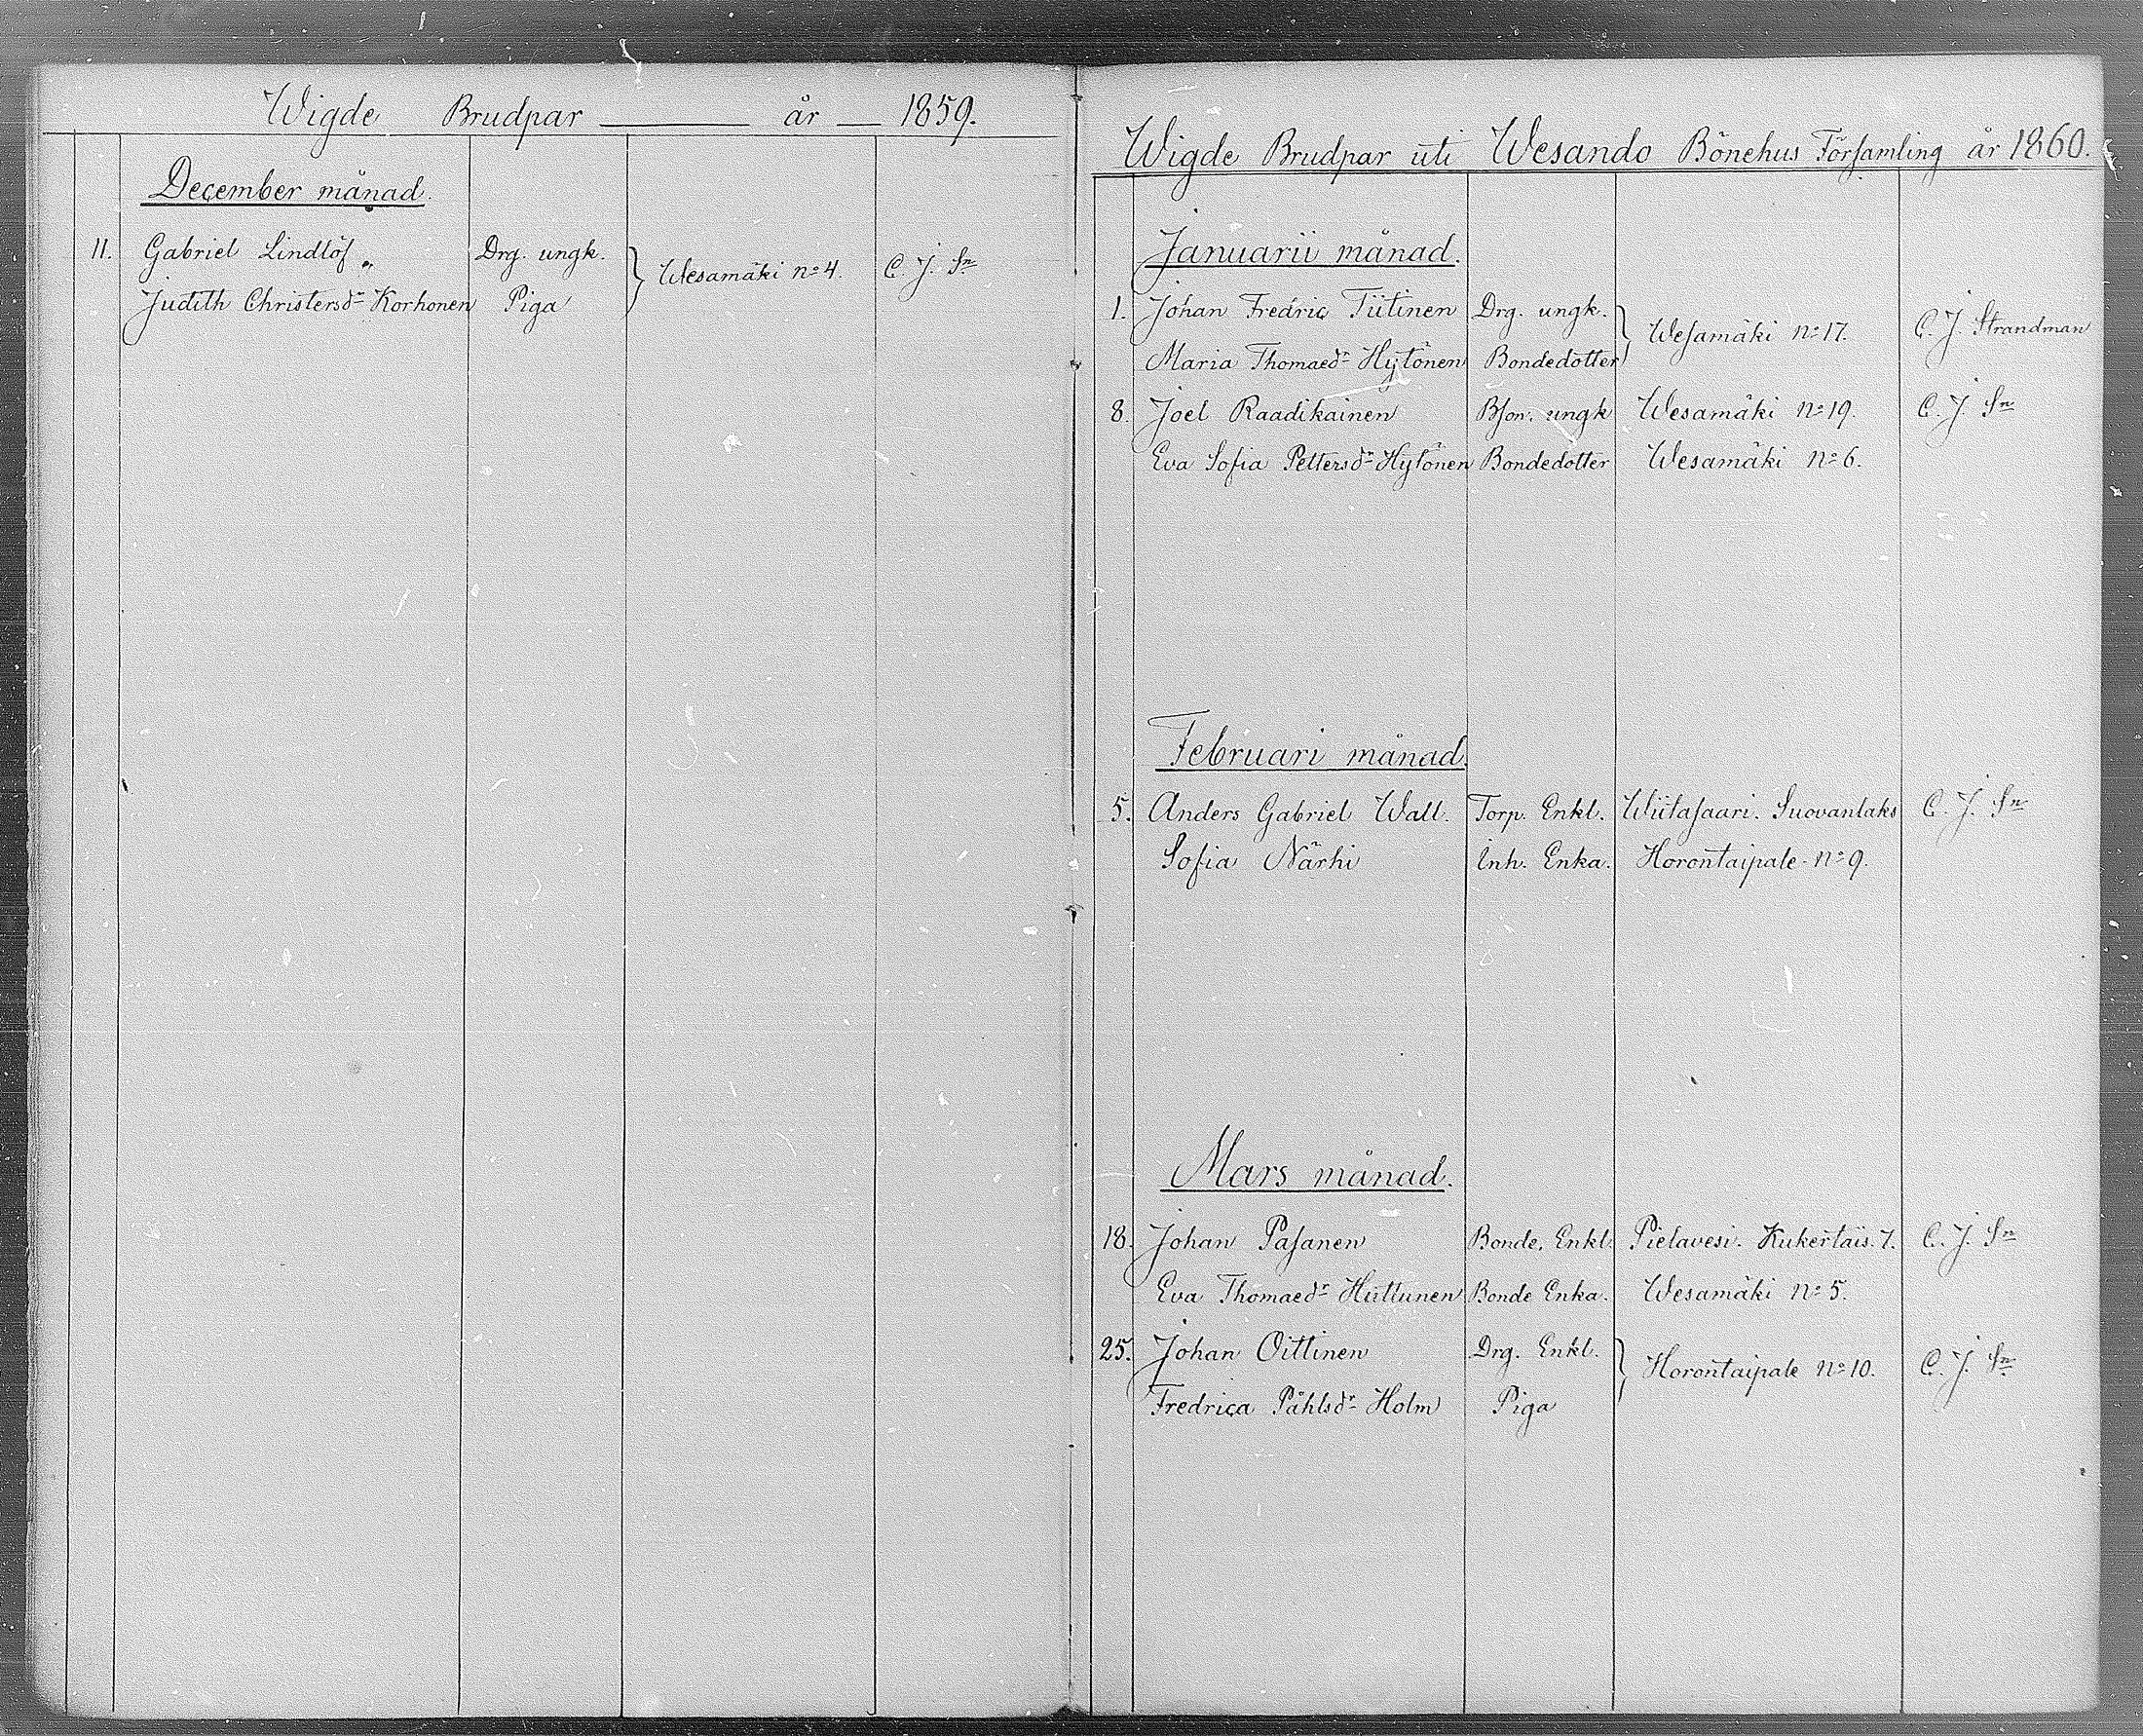 Wigde Brudpar år 1859.
December månad.
11. Gabriel Lindlöf Drg. ungk. Wesamäki No 4. C. J. Sn
Judith Christersdr Korhonen Piga
Wigde Brudpar uti Wesando Bönehus Församling år 1860.
Januarii månad.
1. Johan Fredric Tiitinen Drg. ungk. Wesamäki No 17. C. J. Strandman
Maria Thomaedr Hytönen Bondedotter
8. Joel Raadikainen Bson. ungk Wesamäki No 19. C. J. Sn
Eva Sofia Pettersdr Hytönen Bondedotter Wesamäki No 6.
Februari månad.
5. Anders Gabriel Wall. Torp. Enkl. Wiitasaari. Suovanlaks C. J. Sn
Sofia Närhi Inh. Enka. Horontaipale No 9.
Mars månad.
18. Johan Pasanen Bonde. Enkl. Pielavesi. Kukertais. 7. C. J. Sn
Eva Thomaedr Huttunen Bonde Enka. Wesamäki No 5.
25. Johan Oittinen Drg. Enkl. Horontaipale No 10. C. J. Sn
Fredrica Påhlsdr Holm Piga